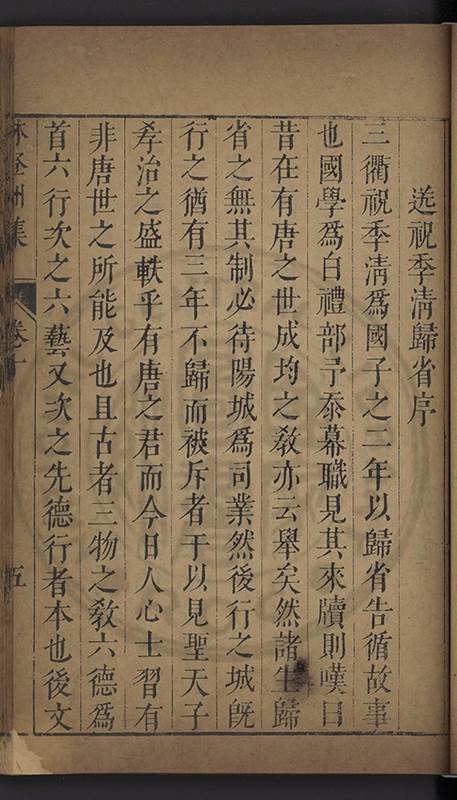 送祝季清歸省序
三衢祝季清爲國子之二年以歸省告循故事
也國學爲白禮部予忝幕職見其來牘則嘆曰
昔在有唐之世成均之教亦云舉矣然諸生歸
省之無其制必待陽城爲司業然後行之城旣
行之猶有三年不歸而被斥者于以見聖天子
孝治之盛軼乎有唐之君而今日人心士習有
非唐世之所能及也且古者三物之教六德爲
首六行次之六藝又次之先德行者本也後文
林登州集 卷十 五